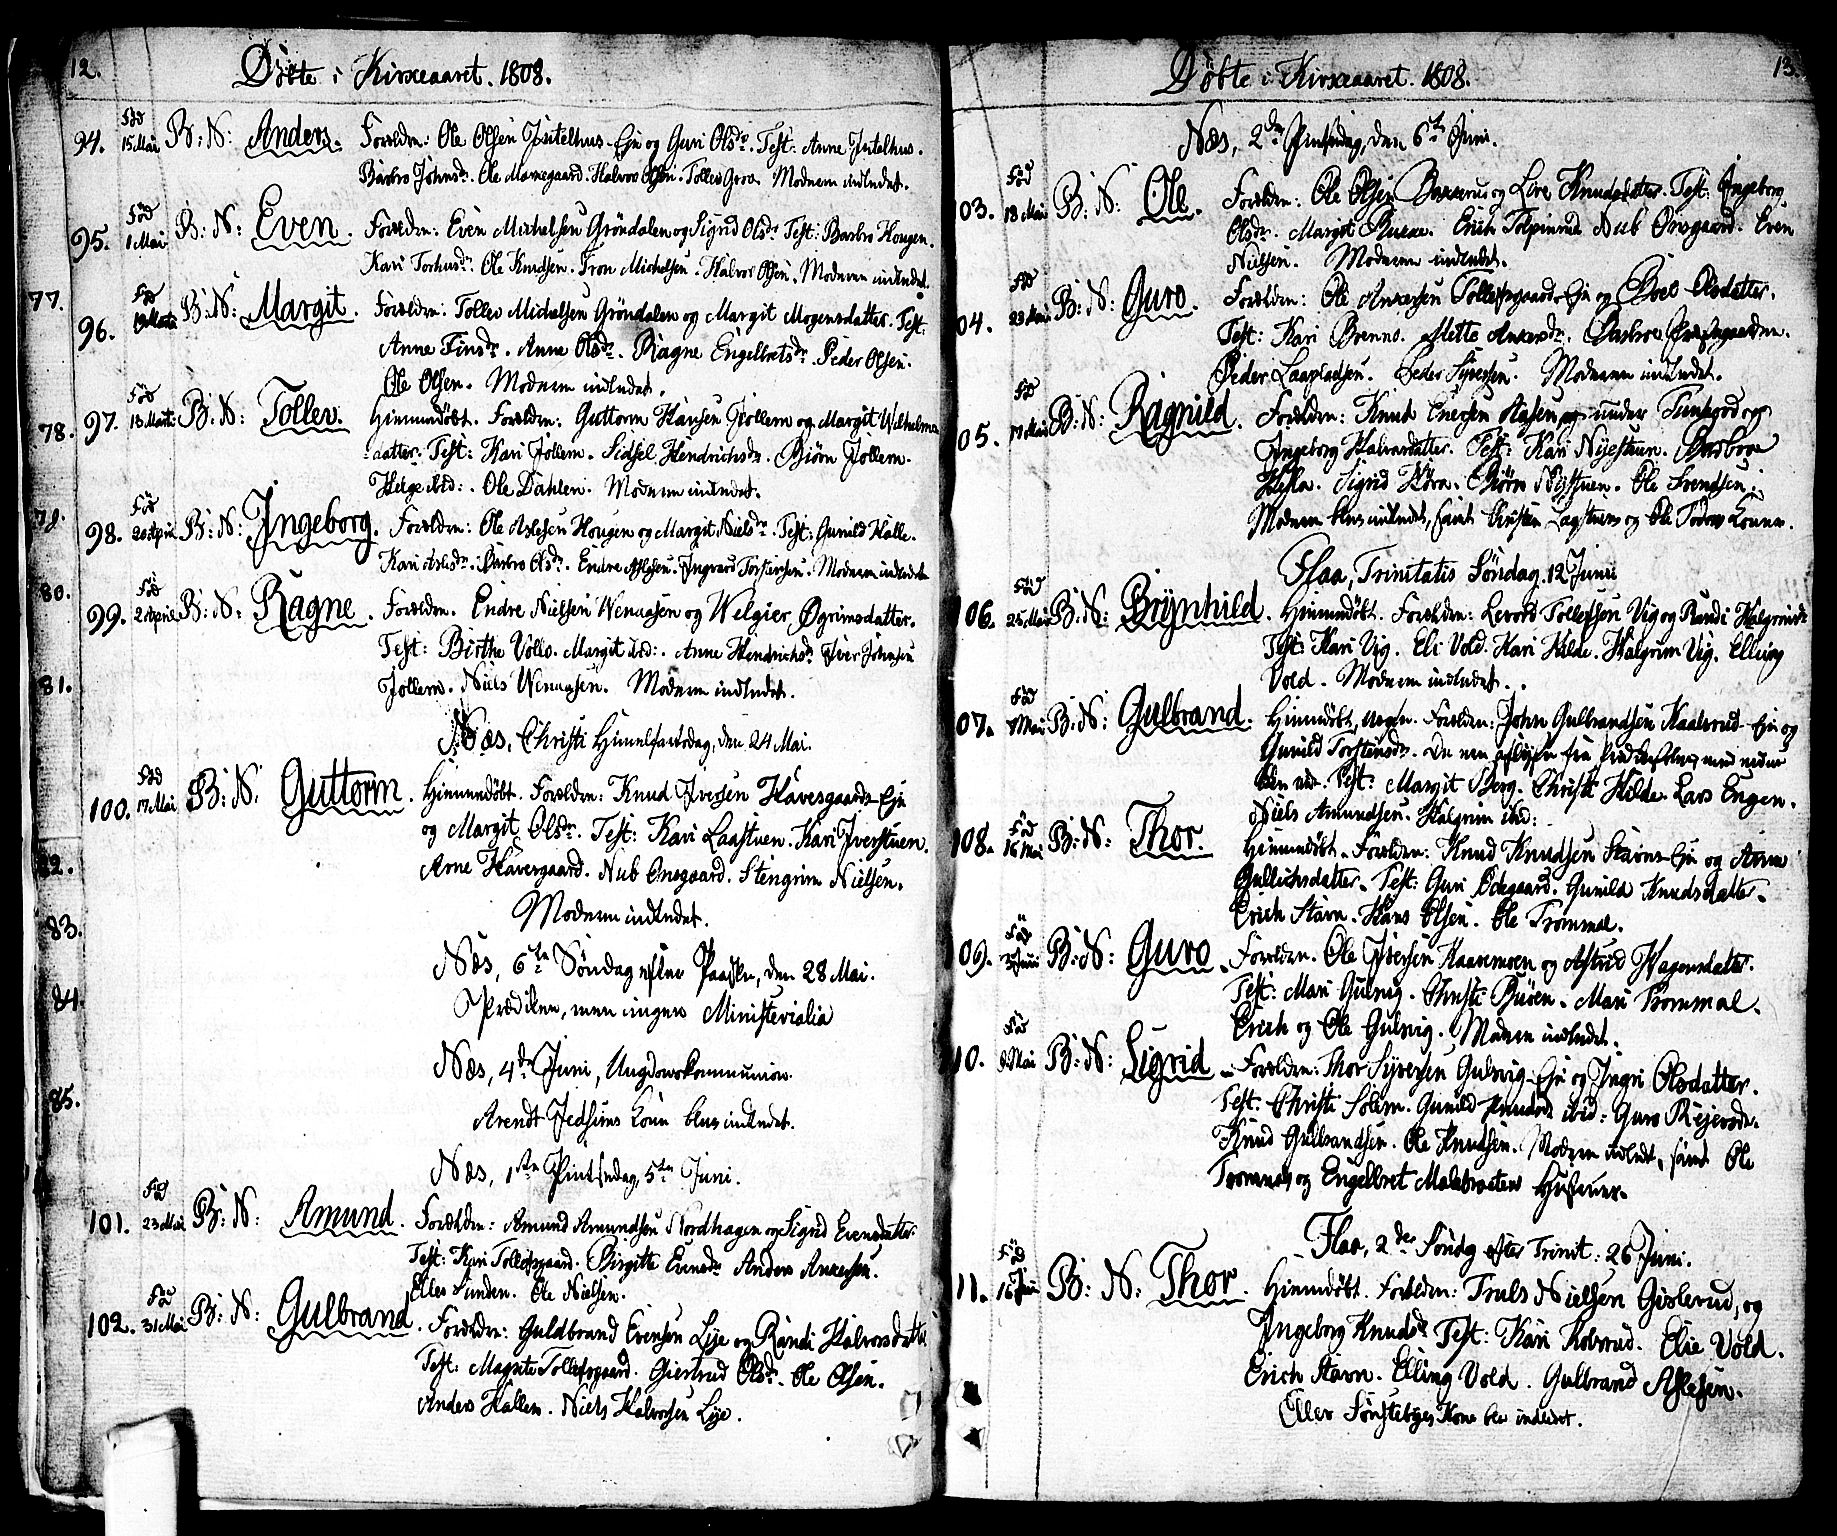 12.
Döbte i Kirkeaaret. 1808.
94. Fød 15 Mai B: N: Anders. Forældrn: Ole Olsen Eje og Guri Olsdr. Test: Anne
Barbro Johnsdr. Ole Halvor Olsen. Tollev Grov. Moderen indledet.
95. Fød 1 Mai B: N: Even. Forældrn: Even Michelsen Gröndalen og Sigrid Olsdr. Test: Barbro Hougen.
Kari Torhusdr. Ole Knudsen. Tron Michelsen. Halvor Olsen. Moderen indledet.
77.
96. Fød B: N: Margit. Forældrn: Tollev Michelsen Gröndalen og Margit Mogensdatter. Test:
Anne Finsdr. Anne Olsdr. Ragne Engelbretsdr. Peder Olsen.
Ole Olsen. Moderen indledet.
78. 97. Fød 13 Martii B: N: Tollev. Hiemmedöbt. Forældrn: Guttorm Hansen Jollem og Margit Wilhelms
datter. Test: Kari Jollem. Sidsel Hendrichsdr. Biörn Jollem.
Helge ibid:. Ole Dahlen. Moderen indledet.
79. 98. Fød 20 April B: N: Ingeborg. Forældrn: Ole Aslesen Hougen og Margit Nielsdr. Test: Gunild Halle.
Kari Aslesdr. Barbro Olsdr. Endre Aslesen. Ingvard Torstensen. Moderen indledet
80.
99. Fød 2 April B: N: Ragne. Forældrn. Endre Nielsen Wenaasen og Welgier Øgrimsdatter.
Test: Birthe Volls. Margit ibid:. Anne Hendrichsdr. Iver Johnsen
81. Jollem. Niels Wenaasen. Moderen indledet.
Næs, Christi Himmelfartsdag, den 24 Mai.
100. Fød 17 Mai B: N: Guttorm. Hiemmedöbt. Forældrn: Knud Iversen Haversgaard Eje
og Margit Olsdr. Test: Kari Laastuen. Kari Iverstuen.
82. Arne Haversgaard. Nub Onsgaard. Stengrim Nielsen.
Moderen indledet.
83.
Næs, 6te Söndag efter Paaske, den 28 Mai.
84. Prædiken, men ingen Ministerialia
Næs, 4de Juni, Ungdomskommunion.
85. Arendt Kone blev indledet.
Næs, 1ste Pintsedag, 5te Juni.
101. Fød 23 Mai B: N: Amund. Forældrn: Amund Amundsen Nordhagen og Sigrid Evensdatter.
Test: Kari Tollefsgaard. Birgitte Evensdr. Anders Ankersen.
Eller Sunden. Ole Nielsen.
102. Fød 31 Mai B: N: Gulbrand. Forældrn: Guldbrand Evensen Lije og Randi Halvorsdatter
Test: Magrete Tollefsgaard. Giertrud Olsdr. Ole Olsen.
Anders Hallen. Niels Halvorsen Lije.
13.
Döbte i Kirkeaaret. 1808.
Næs, 2den Pintsedag, den 6te Juni.
03. Fød 18 Mai B: N: Ole. Forældrn: Ole Olsen og Live Knudsdatter. Test: Ingeborg
Olsdr. Margit Erich Nub Onsgaard. Even
Nielsen. Moderen indledet.
04. Fød 23 Mai B: N: Guro. Forældrn: Ole Ankersen Tollefsgaard Eje og Boel Olsdatter.
Test: Kari Brenno. Mette Ankersdr. Barbro
Peder Peder Syversen. Moderen indledet.
05. Fød B: N: Ragnild. Forældrn: Knud under og
Ingeborg Halvorsdatter. Test: Kari Nyestuen. Barbro
Hesla. Sigrid Biörn Nystuen. Ole Svendsen.
Moderen blev indledet, samt og Ole Koner.
Flaa, Trinitatis Söndag. 12 Junii
106. Fød 25 Mai B: N: Brÿnhild. Hiemmedöbt. Forældrn: Levord Tollefsen Vig og Randi Halgrimsdr
Test: Kari Vig. Eli Vold. Kari Hilde. Halgrim Vig. Elling
Vold. Moderen indledet.
07. Fød Mai B: N: Gulbrand. Hiemmedöbt, Forældrn: John Gulbrandsen Kaalsrud Eje og
Gunild Torstensdr.
Test: Margit Berg. Christi Hilde. Lars Engen.
Niels Amundsen. Halgrim ibid:
108. Fød 16 Mai B: N: Thor. Hiemmedöbt. Forældrn: Knud Knudsen Stavn Eje og Anne
Gullichsdatter. Test: Guri Ødegaard. Gunild Knudsdatter.
Erich Stavn. Hans Olsen. Ole Trommal.
109. Fød Juni B: N: Guro. Forældrn. Ole Iversen Kaaremoen og Astrid Hagensdatter.
Test: Mari Gulsvig. Christi Buöen. Mari Trommal.
Erich og Ole Gulsvig. Moderen indledet.
10. Fød Mai B: N: Sigrid. Forældrn: Thor Syversen Gulsvig Eje og Ingri Olsdatter.
Test: Christi Solem. Gunild Knudsdr ibid: Guro Reiersdr.
Knud Gulbrandsen. Ole Knudsen. Moderen indledt, samt Ole
Trommals og Engelbret Malebraatens Hustruer.
Flaa, 2den Söndag efter Trinit: 26 Juni.
11. Fød 16 Juni B: N: Thor. Hiemmedöbt. Forældrn: Truls Nielsen Gislerud, og
Ingeborg Knudsdr Test: Kari Kolsrud. Elie Vold.
Erich Stavn. Elling Vold. Gulbrand Aslesen.
Eller Sönstebyes Kone blev indledet.